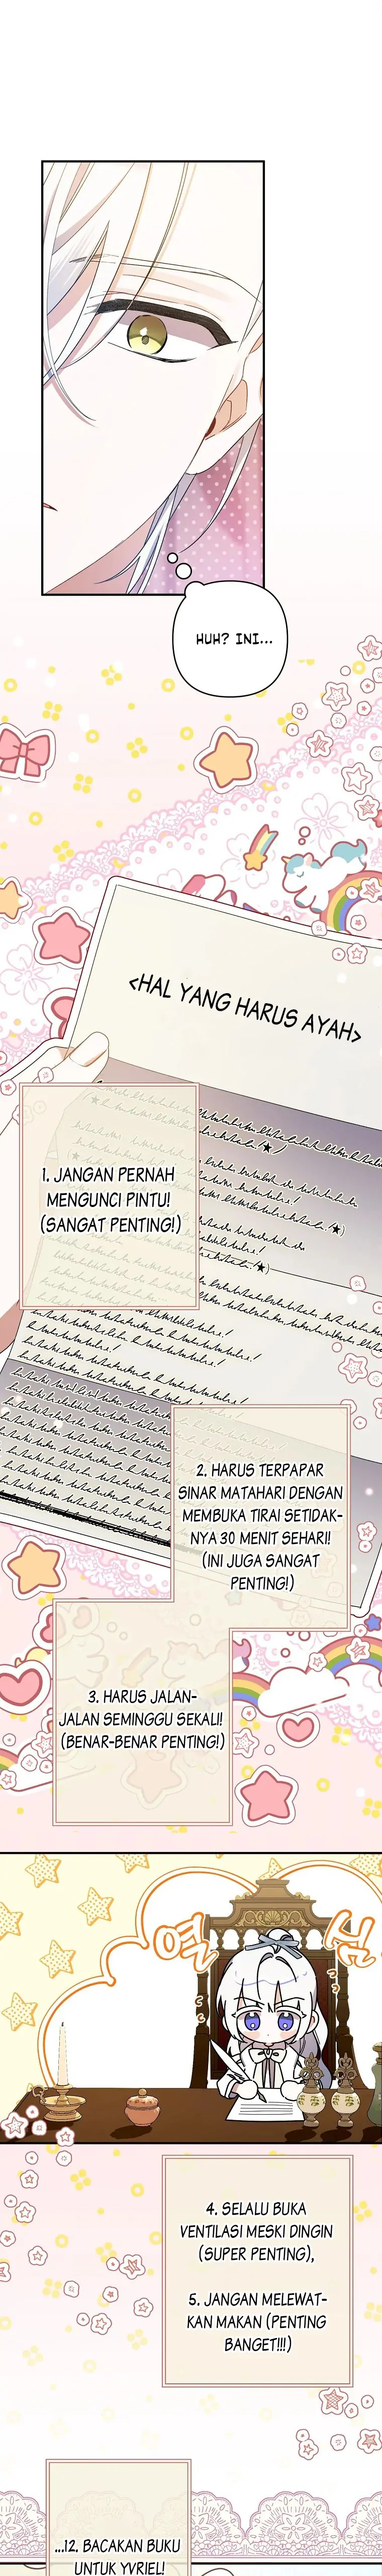 HUH? INI...
<HAL YANG HARUS AYAH>
1. JANGAN PERNAH
MENGUNCI PINTU!
(SANGAT PENTING!)
2. HARUS TERPAPAR
SINAR MATAHARI DENGAN
MEMBUKA TIRAI SETIDAK-
NYA 30 MENIT SEHARI!
(INI JUGA SANGAT
PENTING!)
3. HARUS JALAN-
JALAN SEMINGGU SEKALI!
(BENAR-BENAR PENTING!)
열 심
4. SELALU BUKA
VENTILASI MESKI DINGIN
(SUPER PENTING),
5. JANGAN MELEWAT-
KAN MAKAN (PENTING
BANGET!!!)
...12. BACAKAN BUKU
UNTUK YVRIEL!